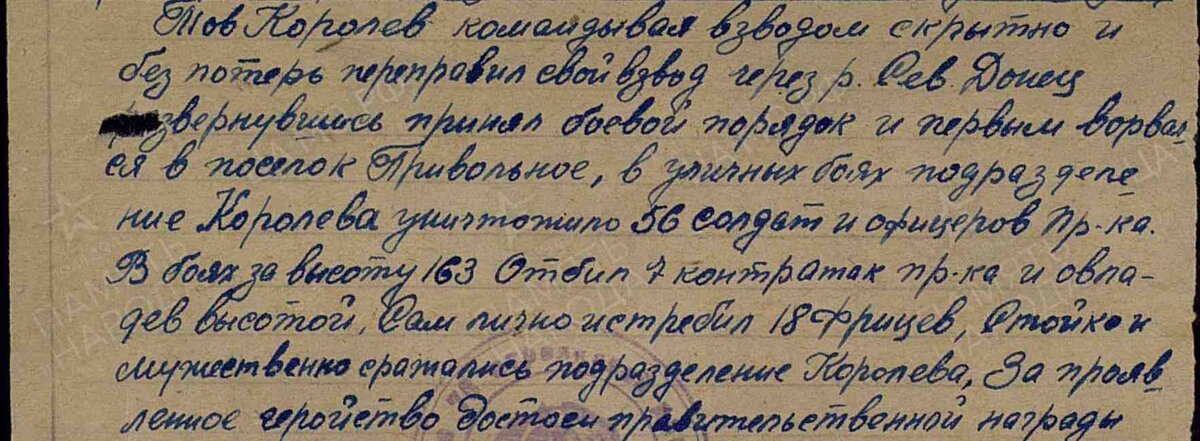 Тов Королев командывая взводом скрытно и
без потерь переправил свой взвод через р. Сев. Донец
развернувшись принял боевой порядок и первым ворвал-
ся в поселок Привольное, в уличных боях подразделе
ние Королева уничтожило 56 солдат и офицеров пр-ка.
В боях за высоту 163 Отбил 7 контратак пр-ка и овла-
дев высотой, Сам лично истребил 18 фрицев, Стойко и
мужественно сражались подразделение Королева, За прояв-
ленное геройство достоен правительственной награды
ПАМЯТЬ
НАРОДА